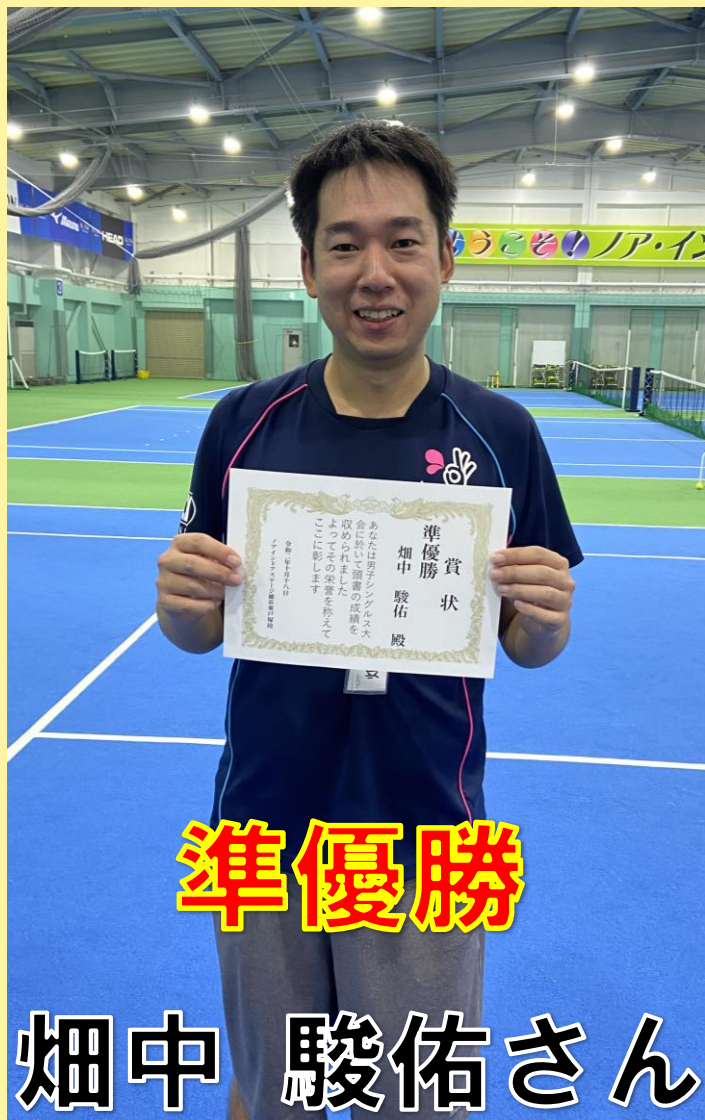 Mizuno
HEAD
ようこそ!ノア・イン
3
賞状
準優勝
畑中 駿佑 殿
あなたは男子シングルス大
会に於いて頭書の成績を
収められました
よってその栄誉を称えて
ここに彰します
令和二年十月十八日
ノアインドアステージ横浜東戸塚校
準優勝
畑中 駿佑さん